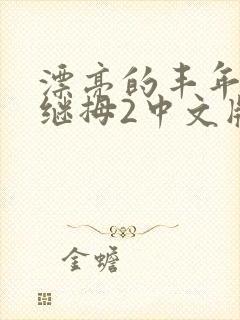 漂亮的丰年
继拇2中文版
金蟾